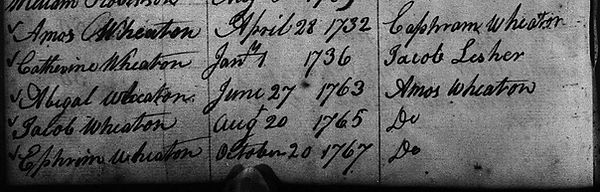 William Robinson
✓Amos Wheaton April 28 1732 Ephram Wheaton
✓Catherine Wheaton Janry 1 1736 Jacob Lesher
✓Abigal Wheaton June 27 1763 Amos Wheaton
✓Jacob Wheaton augt 20 1765 Do
✓Ephrim Wheaton October 20 1767 Do